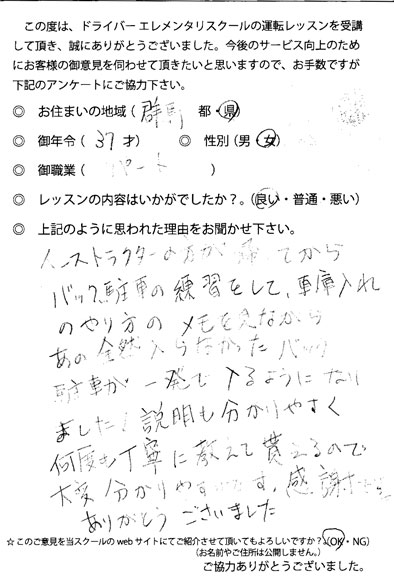 この度は、ドライバー エレメンタリスクールの運転レッスンを受講
して頂き、誠にありがとうございました。今後のサービス向上のため
にお客様の御意見を伺わせて頂きたいと思いますので、お手数ですが
下記のアンケートにご協力下さい。
◎ お住まいの地域（群馬 都・県）
◎ 御年令（37才） ◎ 性別（男・女）
◎ 御職業（パート）
◎ レッスンの内容はいかがでしたか？。（良い・普通・悪い）
◎ 上記のように思われた理由をお聞かせ下さい。
インストラクターの方が帰ってから
バック駐車の練習をして、車庫入れ
のやり方のメモを見ながら
あの全然入らなかったバック
駐車が一発で入るようになり
ました！説明も分かりやすく
何度も丁寧に教えて貰えるので
大変分かりやすいです。感謝
ありがとうございました
☆このご意見を当スクールのwebサイトにてご紹介させて頂いてもよろしいですか？（OK・NG）
（お名前やご住所は公開しません。）
ご協力ありがとうございました。